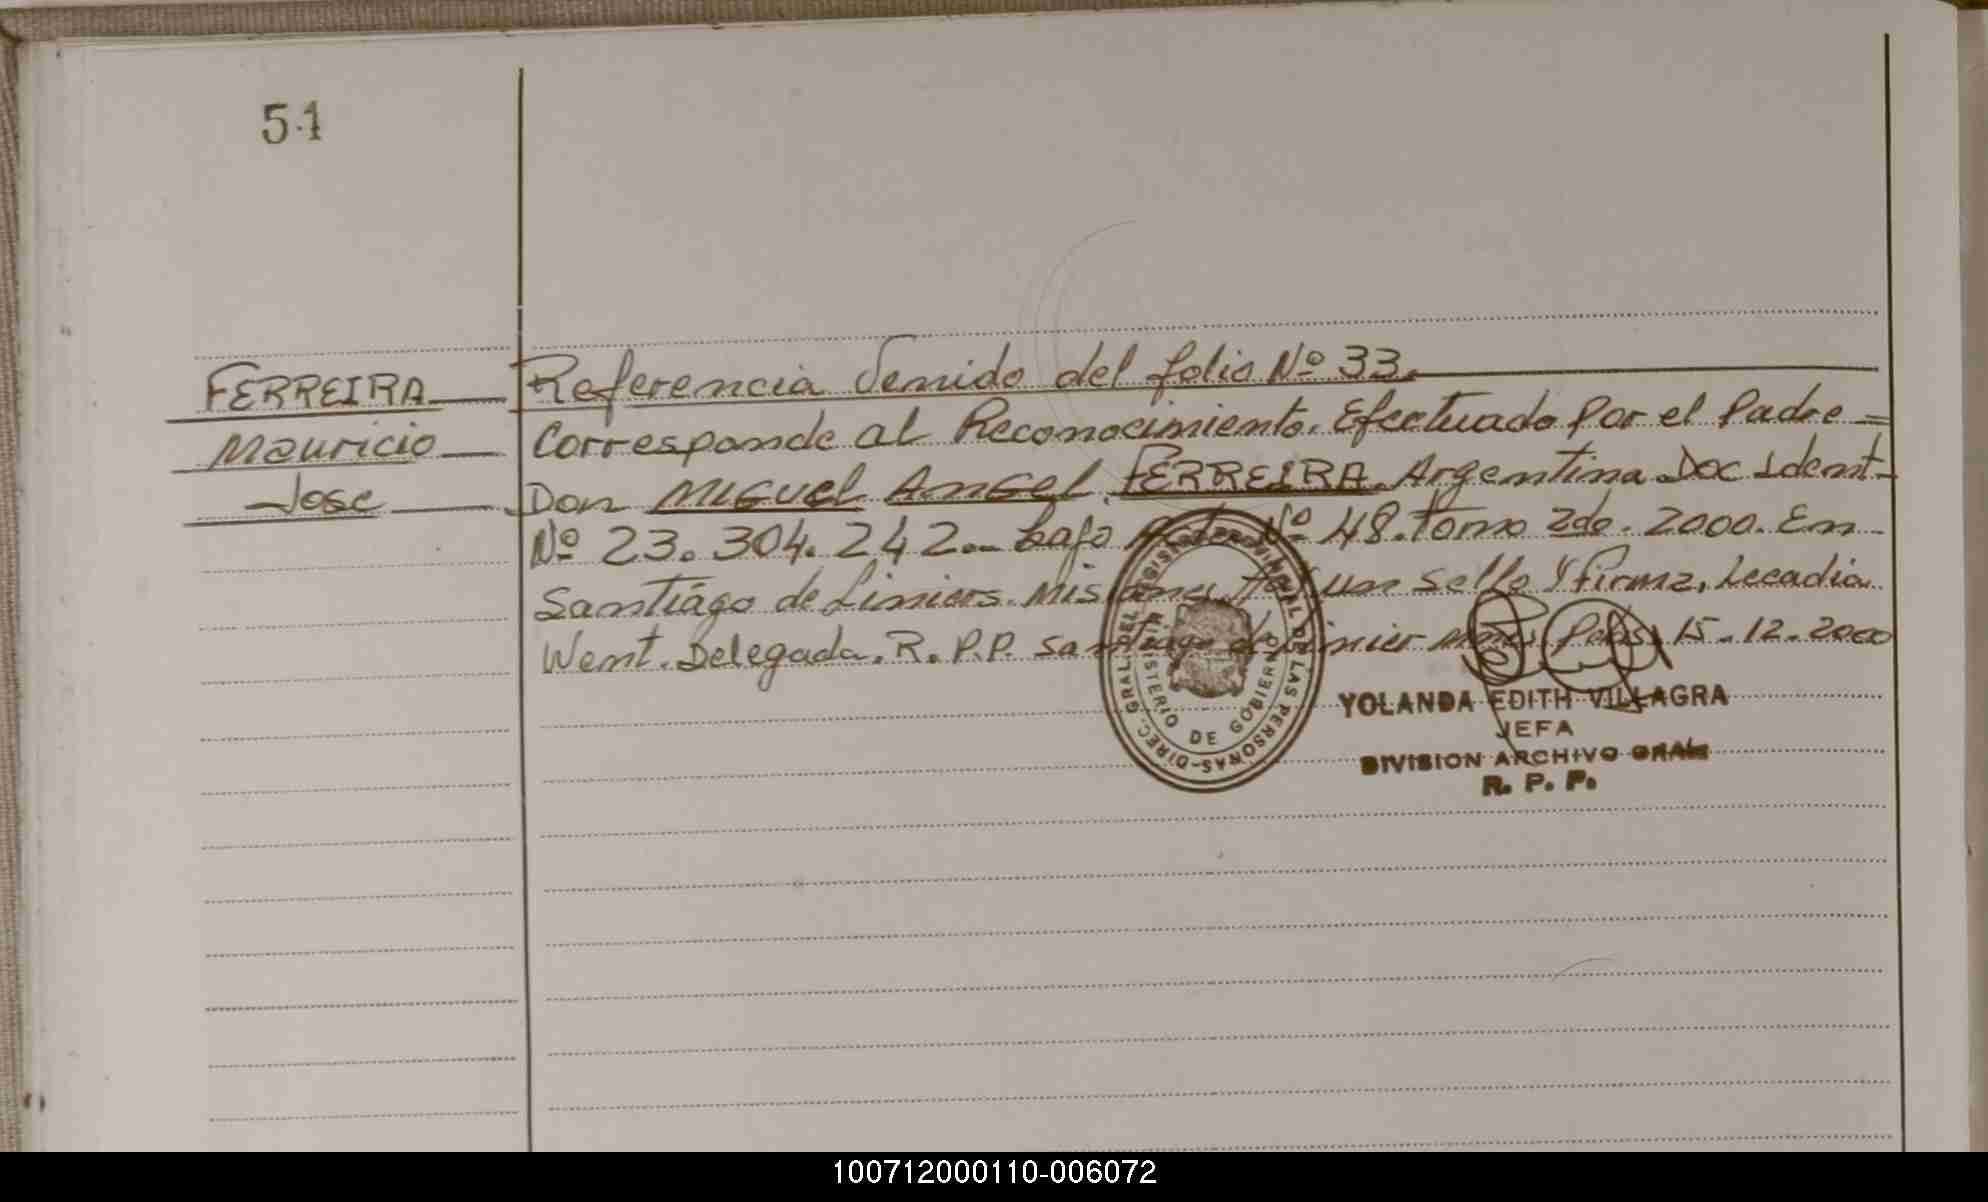 51
FERREIRA Referencia Venido del folio Nº 33.
Mauricio Corresponde al Reconocimiento. Efectuado por el Padre =
Jose Don MIGUEL ANGEL FERREIRA. Argentina Doc Ident-
Nº 23.304.242.- bajo Acta Nº 48. tomo 2do. 2000. En
Santiago de Liniers. Misiones. un sello y firma, Lecadia
Went. Delegada. R.P.P. Santiago de Linier Mnes. 15.12.2000
DIREC. GRAL. DEL REGISTRO PROVINCIAL DE LAS PERSONAS
MINISTERIO DE GOBIERNO
YOLANDA EDITH VILLAGRA
JEFA
DIVISION ARCHIVO GRAL
R. P. P.
100712000110-006072